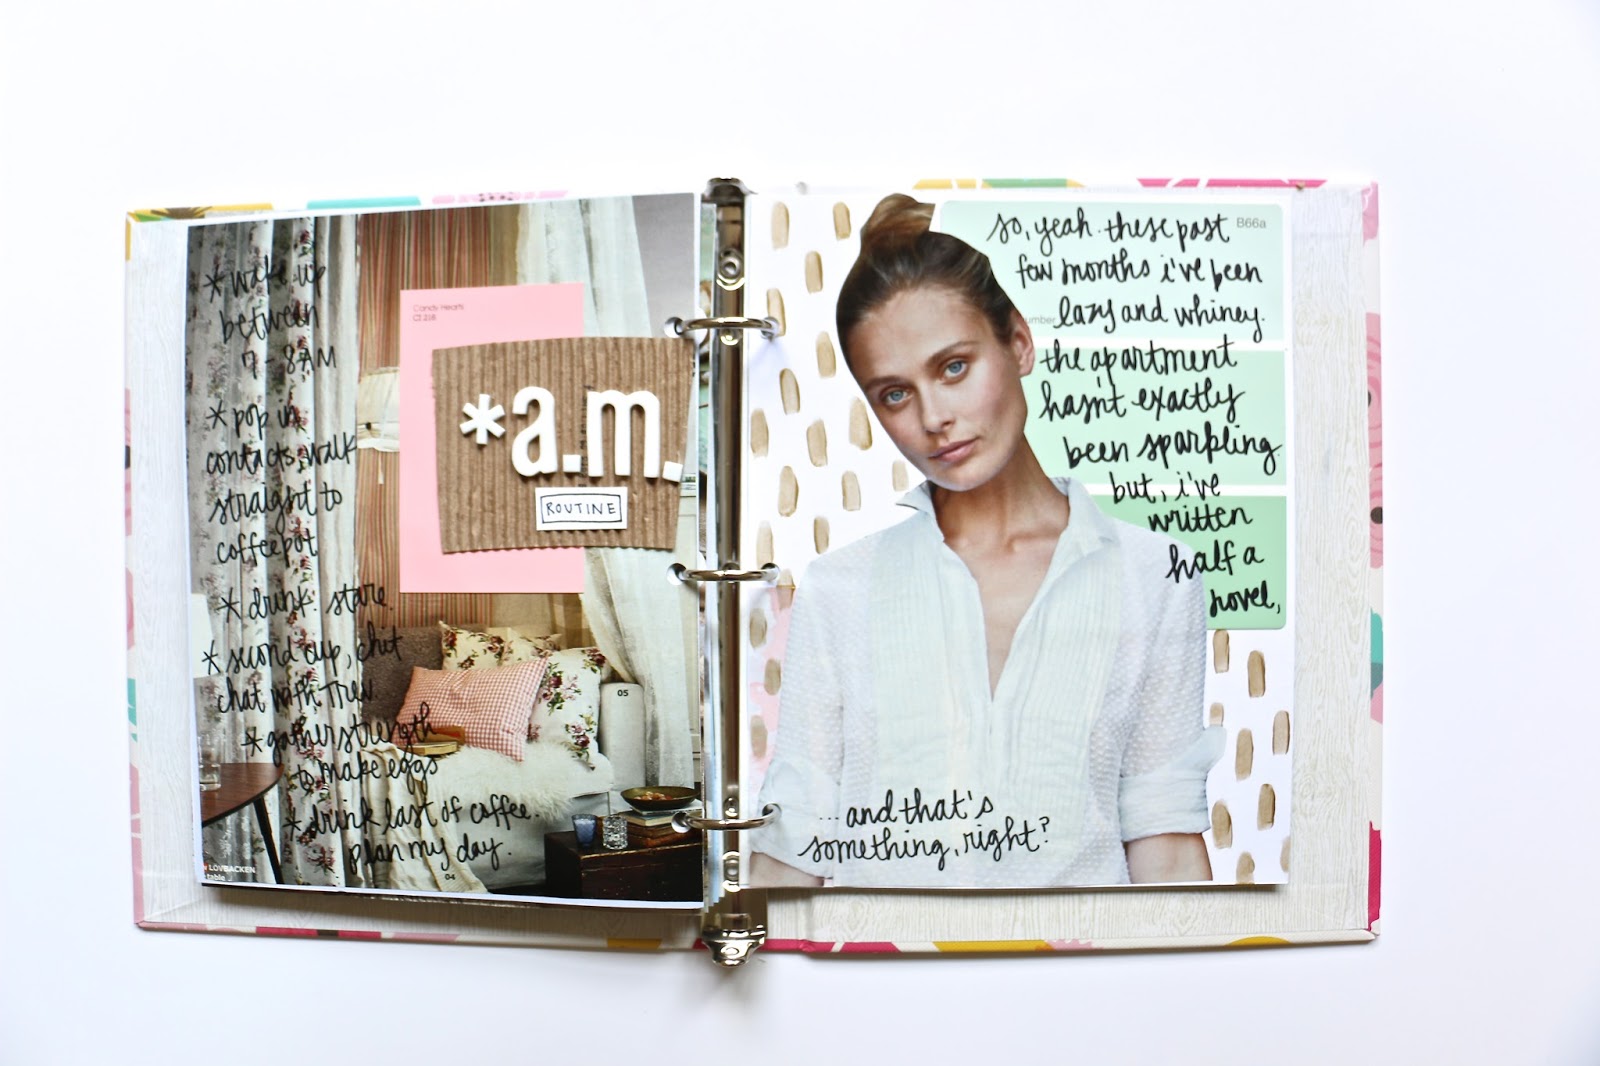 * wake up
between
7-8AM
* pop in
contacts, walk
straight to
coffeepot
* drink. stare.
* second cup, chit
chat with Trev
* gather strength
to make eggs
* drink last of coffee.
plan my day.
LOVBACKEN
table
04
05
Candy Hearts
CI 218
*a.m.
ROUTINE
B66a
so, yeah. these past
few months i've been
number lazy and whiney.
the apartment
hasn't exactly
been sparkling.
but, i've
written
half a
novel,
... and that's
something, right?